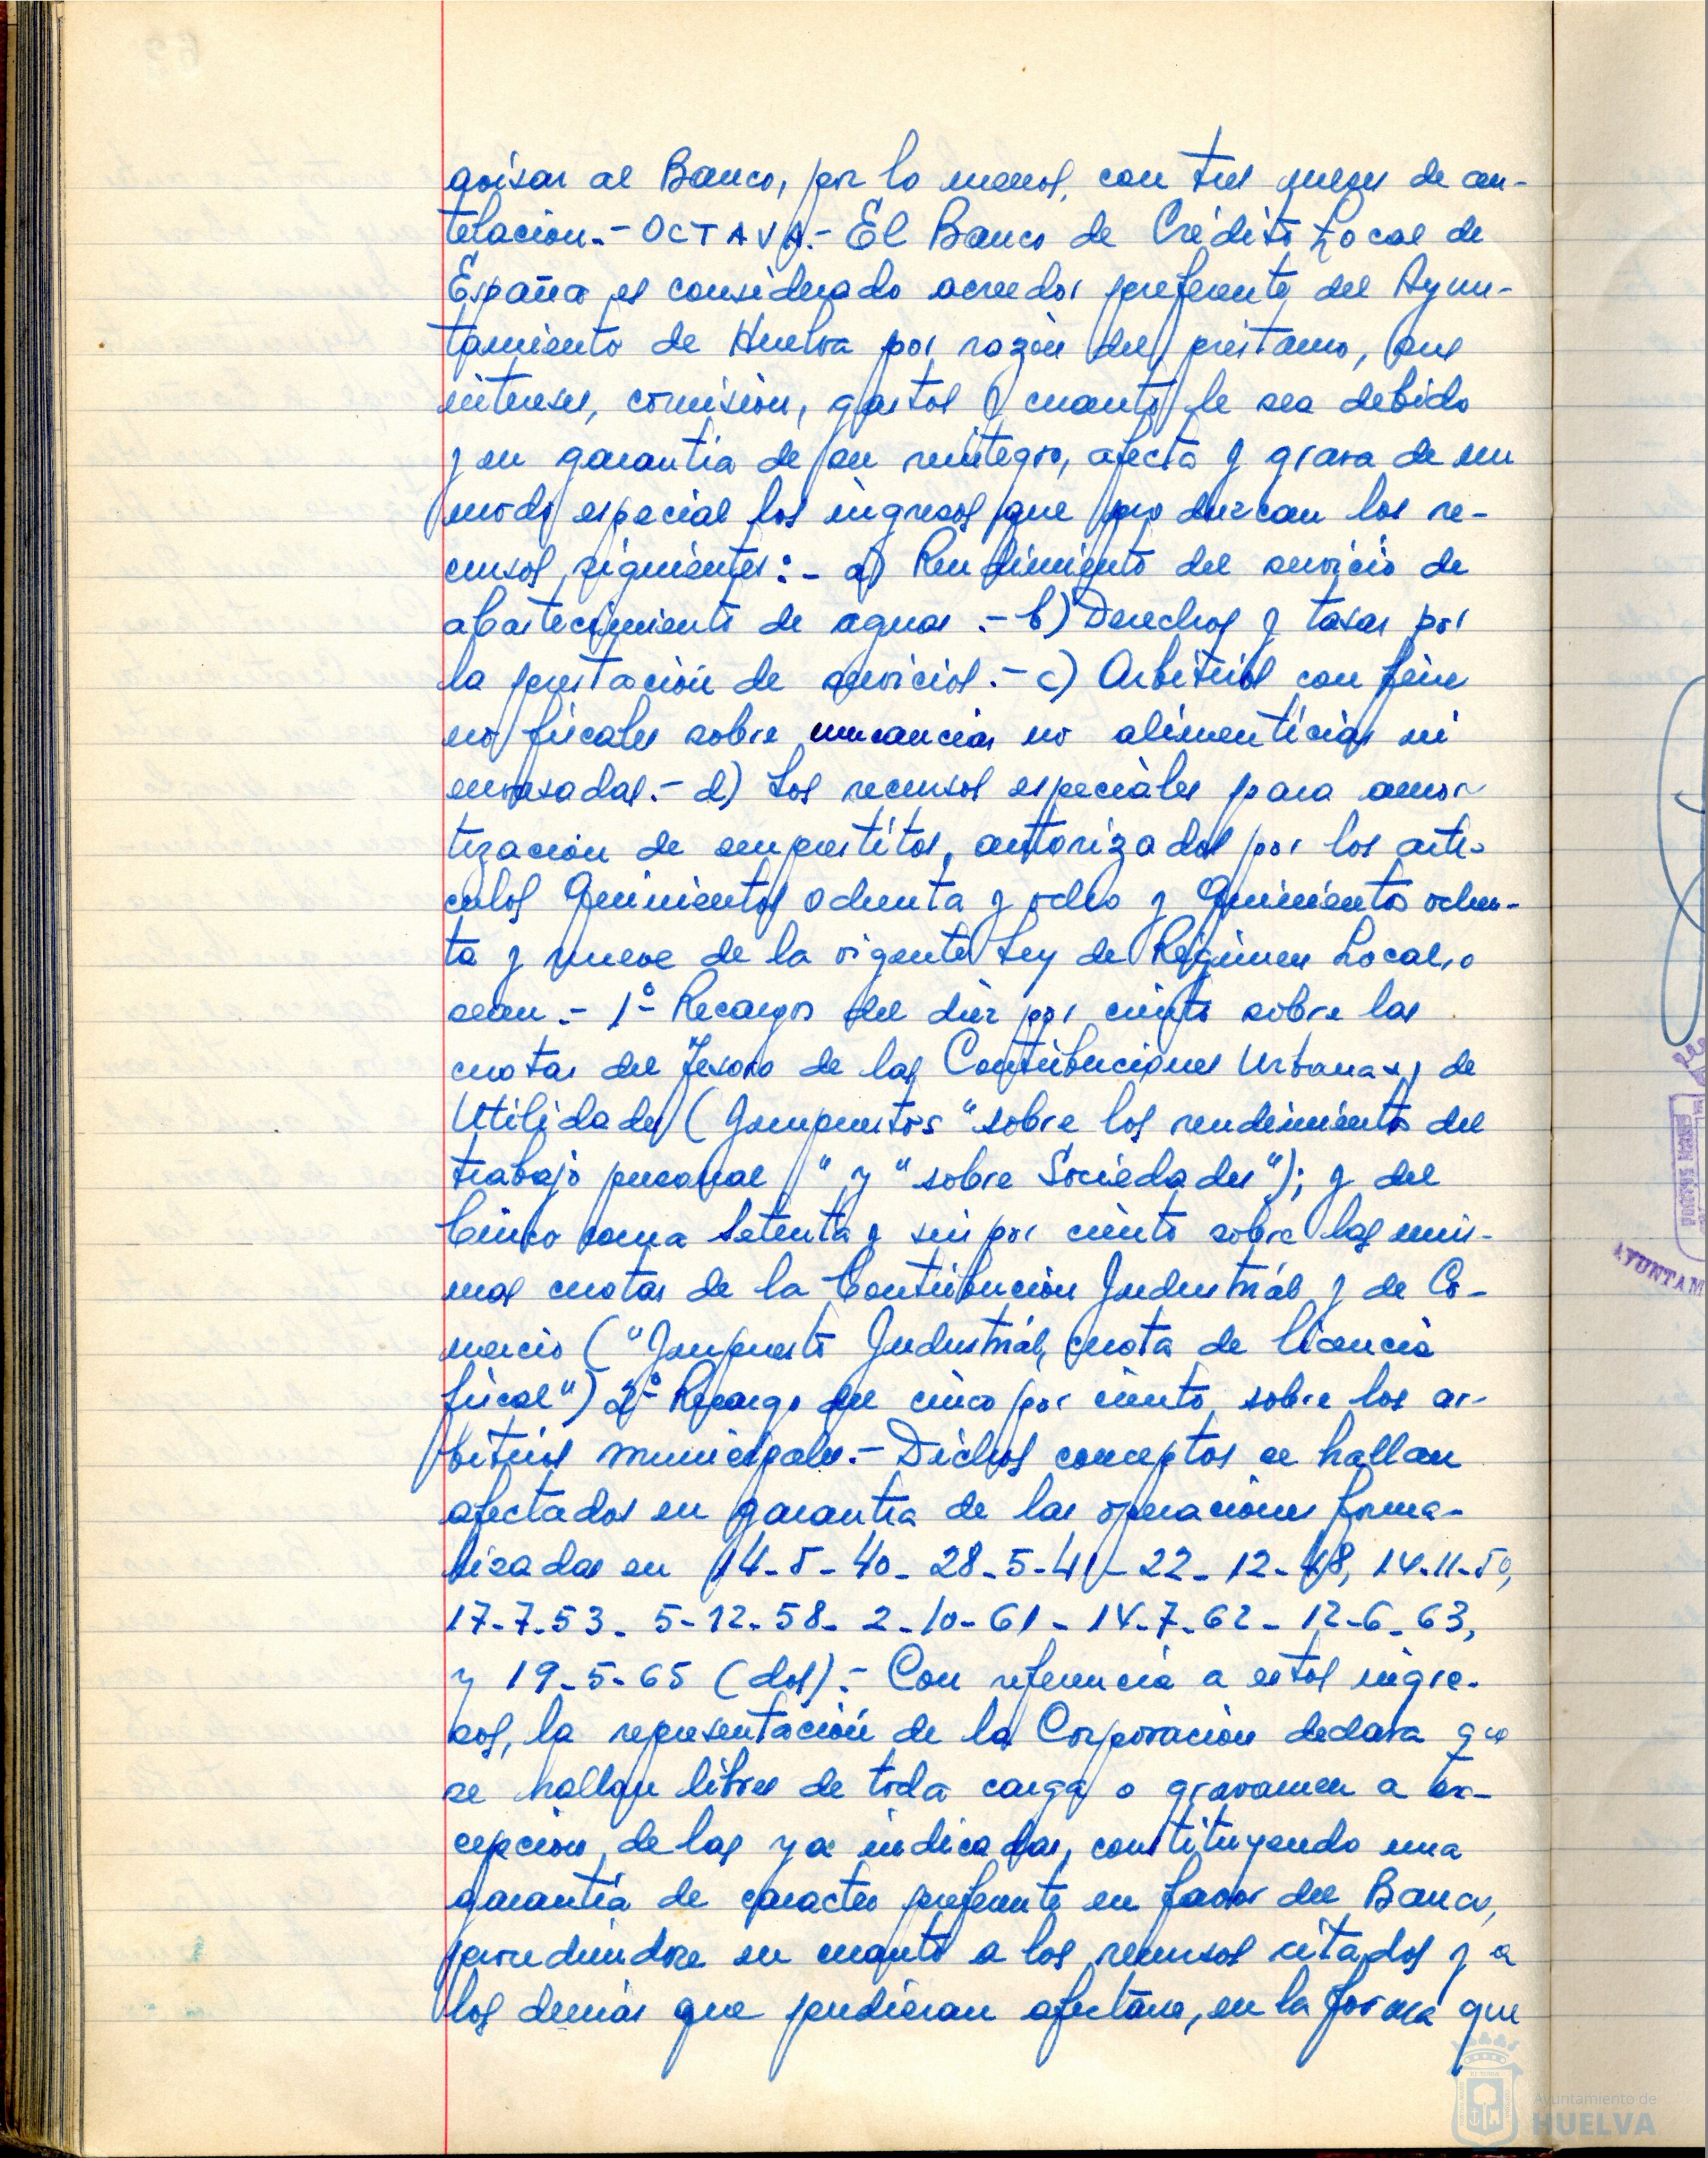 avisar al Banco, por lo menos, con tres meses de an-
telación.- OCTAVA.- El Banco de Crédito Local de
España es considerado acreedor preferente del Ayun-
tamiento de Huelva por razón del préstamo, sus
intereses, comisión, gastos y cuanto le sea debido
y en garantía de su reintegro, afecta y grava de un
modo especial los ingresos que produzcan los re-
cursos siguientes:- a) Rendimiento del servicio de
abastecimiento de aguas.- b) Derechos y tasas por
la prestación de servicios.- c) Arbitrios con fin
no fiscales sobre mercancias no alimenticias ni
envasadas.- d) Los recursos especiales para amor
tización de empréstitos, autorizados por los artí-
culos Quinientos ochenta y ocho y Quinientos ochen-
ta y nueve de la vigente Ley de Régimen Local, o
sean.- 1º- Recargos del diez por ciento sobre las
cuotas del Tesoro de las Contribuciones Urbana y de
Utilidades (Impuestos "sobre los rendimientos del
trabajo personal" y "sobre Sociedades"); y del
Cinco coma Setenta y seis por ciento sobre las mis-
mas cuotas de la Contribución Industrial y de Co-
mercio ("Impuesto Industrial, cuota de licencia
fiscal") 2º- Recargo del cinco por ciento sobre los ar-
bitrios municipales.- Dichos conceptos se hallan
afectados en garantía de las operaciones forma-
lizadas en 14-5-40- 28-5-41- 22-12-48, 14-11-50,
17-7-53- 5-12-58- 2-10-61- 14-7-62- 12-6-63,
y 19-5-65 (dos).- Con referencia a estos ingre-
sos, la representación de la Corporación declara que
se hallan libres de toda carga o gravamen a ex-
cepción de las ya indicadas, constituyendo una
garantía de caracter preferente en favor del Banco,
procediendose en cuanto a los recursos citados y a
los demás que pudieran afectarse, en la forma que
AYUNTAM
Ayuntamiento de
HUELVA